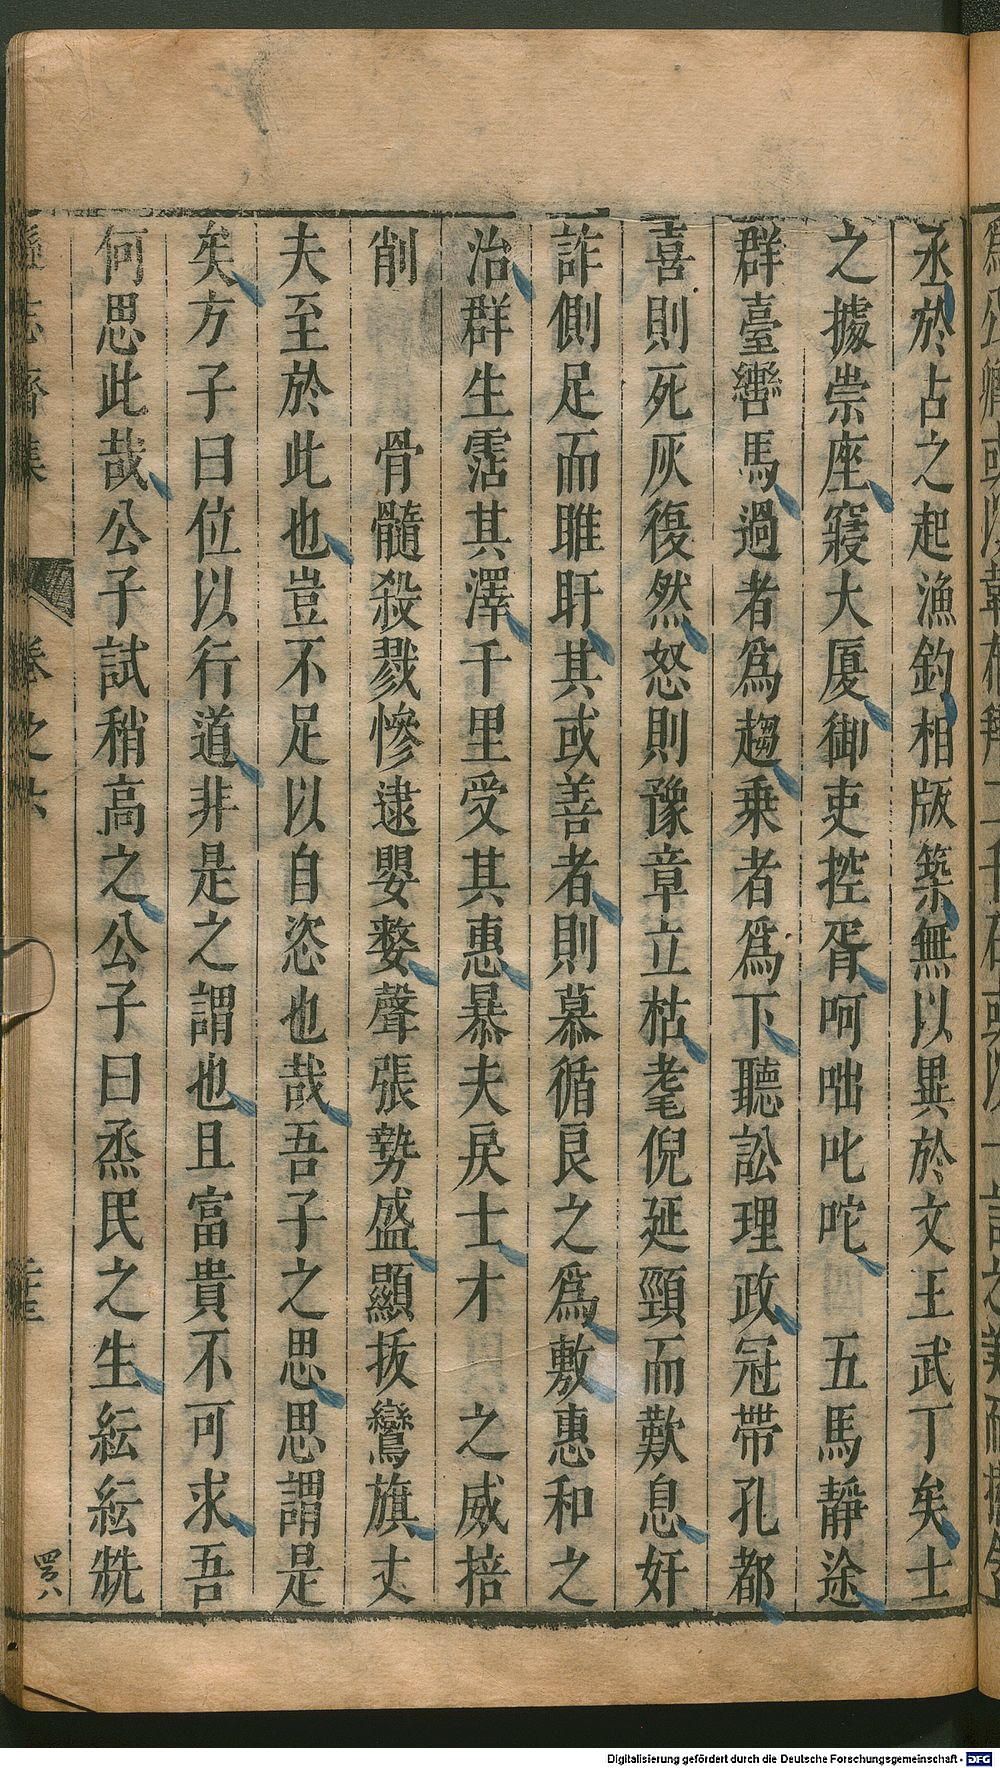 丞於占之起漁釣相版築無以異於文王武丁矣士
之據崇座寢大厦御吏控胥呵咄叱咜 五馬靜途
群臺轡馬過者爲趨乘者爲下聽訟理政冠帶孔都
喜則死灰復然怒則豫章立枯耄倪延頸而歎息奸
詐側足而睢盱其或善者則慕循良之爲敷惠和之
治群生霑其澤千里受其惠暴夫戾士才 之威掊
削 骨髓殺戮慘逮嬰婺聲張勢盛顯抜鸞旗丈
夫至於此也豈不足以自恣也哉吾子之思思謂是
矣方子曰位以行道非是之謂也且富貴不可求吾
何思此哉公子試稍高之公子曰烝民之生紜紜兟
遜志齋集 卷之六
Digitalisierung gefördert durch die Deutsche Forschungsgemeinschaft - DFG